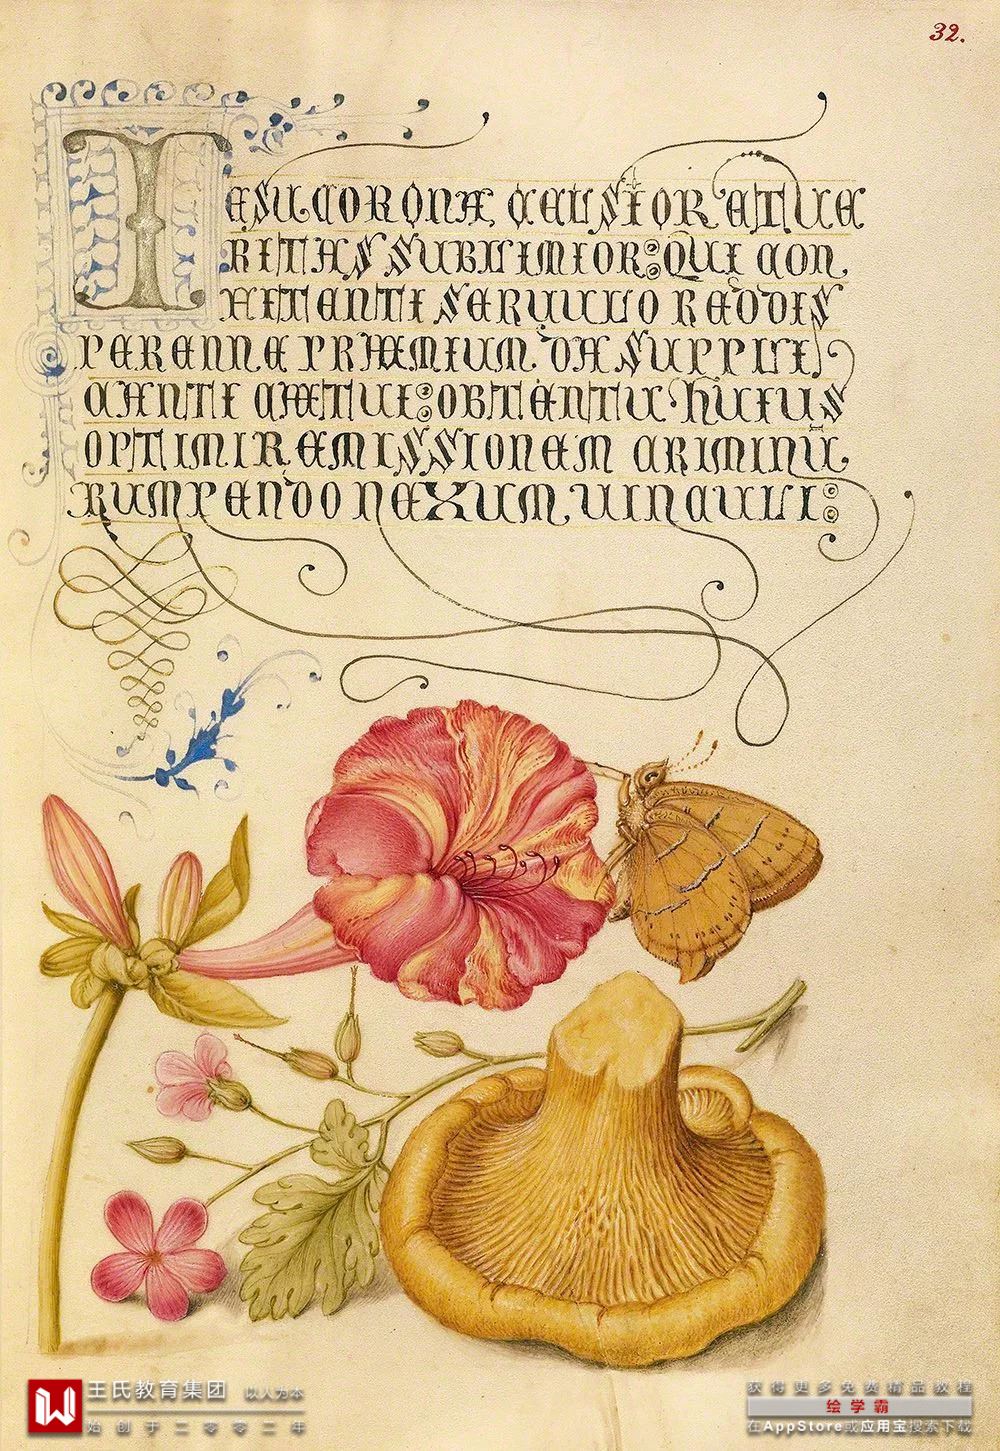 32.
IESU CORONÆ, CELSIOR ET UE
RITAS SUBLIMIOR: QUI CON,
FITENTI SERUULO REDDIS
PERENNE PRÆMIUM. DA SUPPLI
CANTI CÆTUI: OBTENTU HUIUS
OPTIMI REMISSIONEM CRIMINŪ
RUMPENDO NEXUM, UINCULI:
王氏教育集团 以人为本
始创于二零零二年
获得更多免费精品教程
绘学霸
在AppStore或应用宝搜索下载